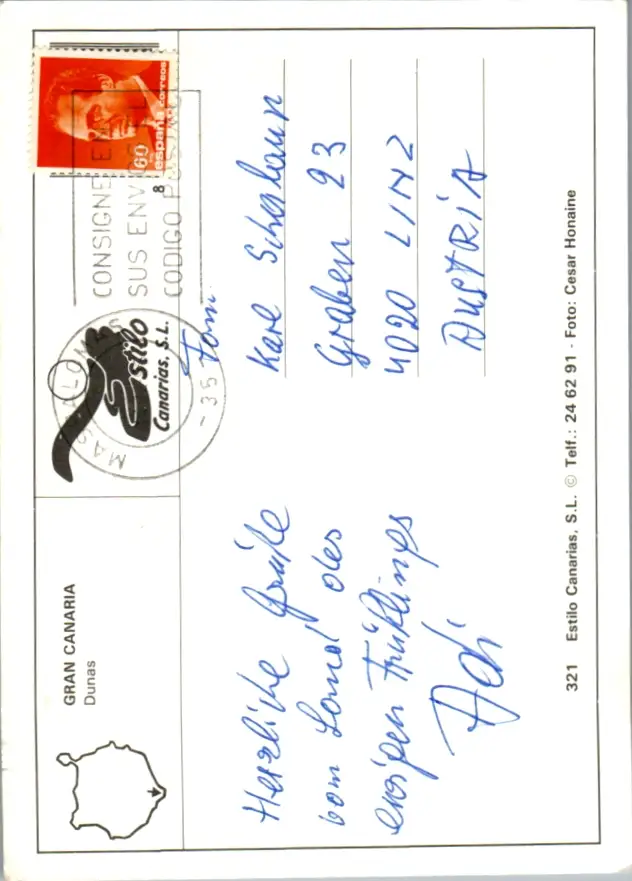 GRAN CANARIA
Dunas
Herzliche Grüße
vom Land des
ewigen Frühlings
Adi
Estilo
Canarias, S.L.
MASPALOMAS
CONSIGNE EN
SUS ENVIOS EL
CODIGO POSTAL
60
españa correos
8
Fam.
Karl
Graben 23
4020 LINZ
AUSTRIA
321 Estilo Canarias, S.L. © Telf.: 24 62 91 - Foto: Cesar Honaine